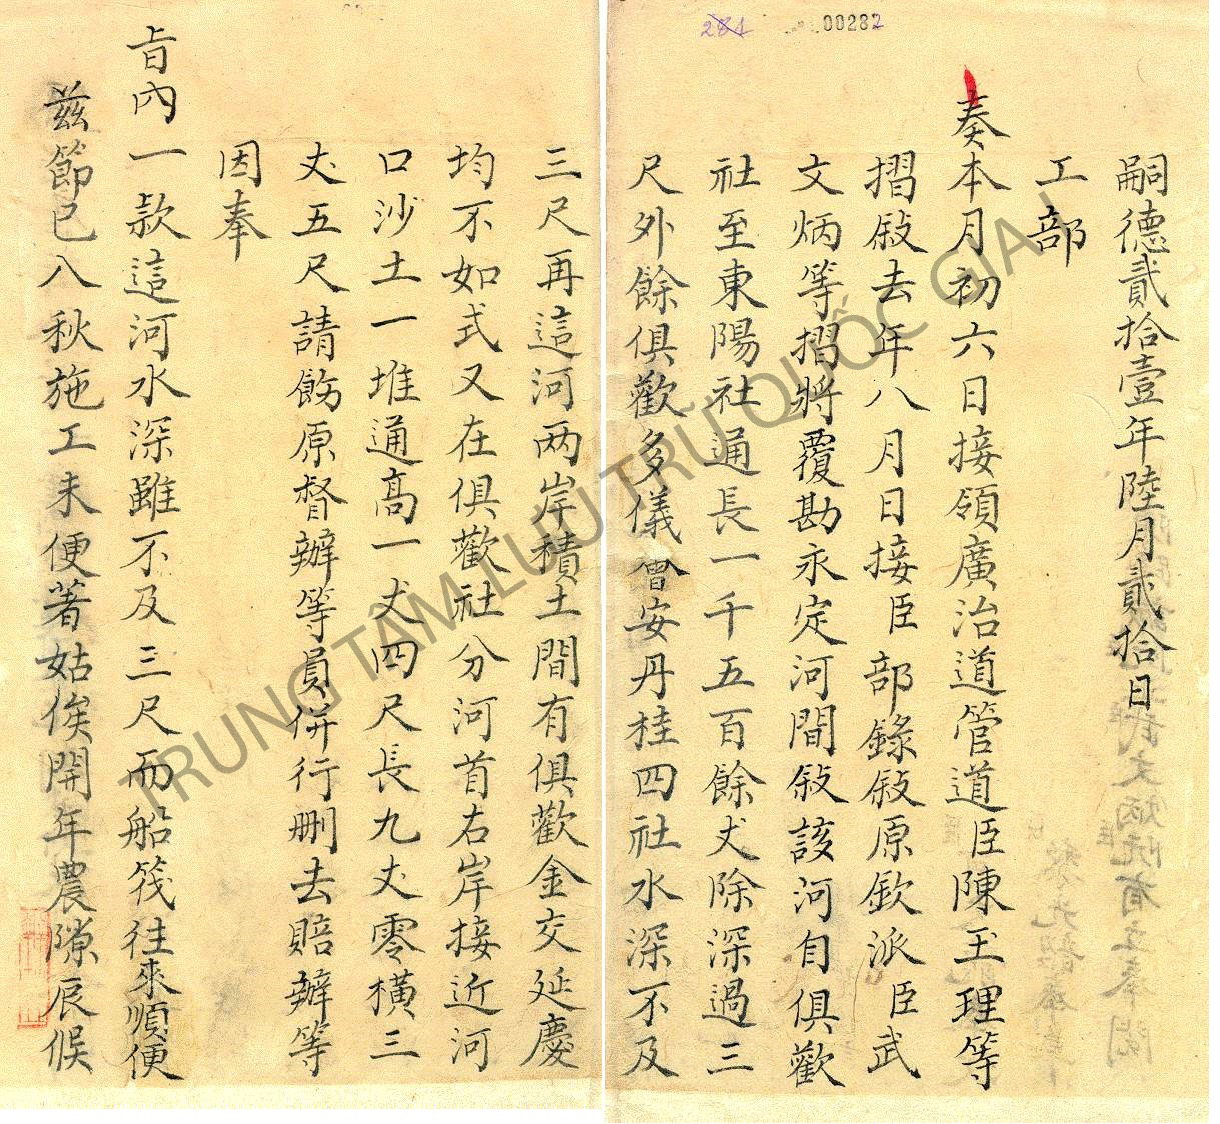 281
00282
嗣德貳拾壹年陸月貳拾日
工部
奏本月初六日接領廣治道管道臣陳玉理等
摺敍去年八月日接臣部錄敍原欽派臣武
文炳等摺將覆勘永定河間敍該河自俱歡
社至東陽社通長一千五百餘丈除深過三
尺外餘俱歡多儀會安丹桂四社水深不及
三尺再這河两岸積土間有俱歡金交延慶
均不如式又在俱歡社分河首右岸接近河
口沙土一堆通高一丈四尺長九丈零横三
丈五尺請飭原督辦等員併行删去賠辦等
因奉
旨內一款這河水深雖不及三尺而船筏往來順便
兹節已八秋施工未便著姑俟開年農隙辰候
TRUNG TÂM LƯU TRỮ QUỐC GIA I